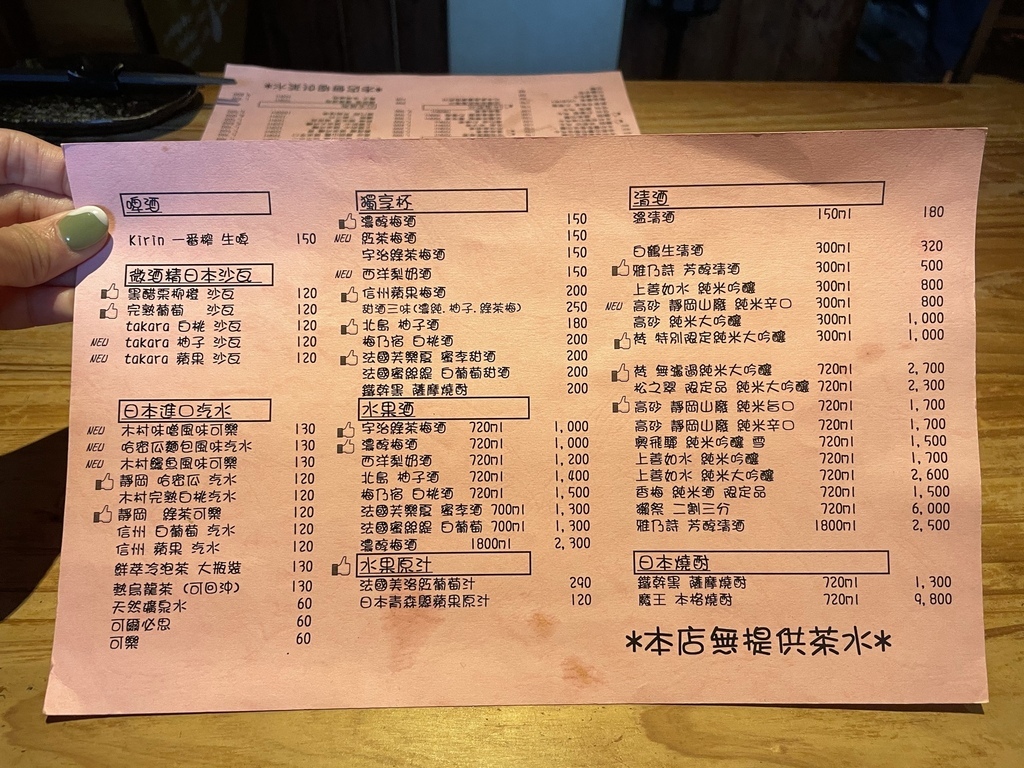 啤酒
Kirin 一番榨 生啤 150
微酒精日本沙瓦
黑醋栗柳橙 沙瓦 120
完熟葡萄 沙瓦 120
takara 白桃 沙瓦 120
NEW takara 柚子 沙瓦 120
NEW takara 蘋果 沙瓦 120
日本進口汽水
NEW 木村味噌風味可樂 130
NEW 哈密瓜麵包風味汽水 130
NEW 木村鰻魚風味可樂 130
靜岡 哈密瓜 汽水 120
木村完熟白桃汽水 120
靜岡 綠茶可樂 120
信州 白葡萄 汽水 120
信州 蘋果 汽水 120
鮮萃冷泡茶 大瓶裝 130
熱烏龍茶 (可回沖) 130
天然礦泉水 60
可爾必思 60
可樂 60
獨享杯
濃醇梅酒 150
NEW 紅茶梅酒 150
宇治綠茶梅酒 150
NEW 西洋梨奶酒 150
信州蘋果梅酒 200
甜酒三味(濃純.柚子.綠茶梅) 250
北島 柚子酒 180
梅乃宿 白桃酒 200
法國芙樂夏 蜜李甜酒 200
法國蜜緹緹 白葡萄甜酒 200
鐵幹黑 薩摩燒酎 200
水果酒
宇治綠茶梅酒 720ml 1,000
濃醇梅酒 720ml 1,000
西洋梨奶酒 720ml 1,200
北島 柚子酒 720ml 1,400
梅乃宿 白桃酒 720ml 1,500
法國芙樂夏 蜜李 700ml 1,300
法國蜜緹緹 白葡萄 700ml 1,300
濃醇梅酒 1800ml 2,300
水果原汁
法國美洛紅葡萄汁 290
日本青森縣蘋果原汁 120
清酒
溫清酒 150ml 180
白鶴生清酒 300ml 320
雅乃詩 芳醇清酒 300ml 500
上善如水 純米吟釀 300ml 800
NEW 高砂 靜岡山廢 純米辛口 300ml 800
高砂 純米大吟釀 300ml 1,000
梵 特別限定純米大吟釀 300ml 1,000
梵 無濾過純米大吟釀 720ml 2,700
松之翠 限定品 純米大吟釀 720ml 2,300
高砂 靜岡山廢 純米旨口 720ml 1,700
高砂 靜岡山廢 純米辛口 720ml 1,700
奧飛驒 純米吟釀 雪 720ml 1,500
上善如水 純米吟釀 720ml 1,700
上善如水 純米大吟釀 720ml 2,600
香梅 純米酒 限定品 720ml 1,500
獺祭 二割三分 720ml 6,000
雅乃詩 芳醇清酒 1800ml 2,500
日本燒酎
鐵幹黑 薩摩燒酎 720ml 1,300
魔王 本格燒酎 720ml 9,800
*本店無提供茶水*